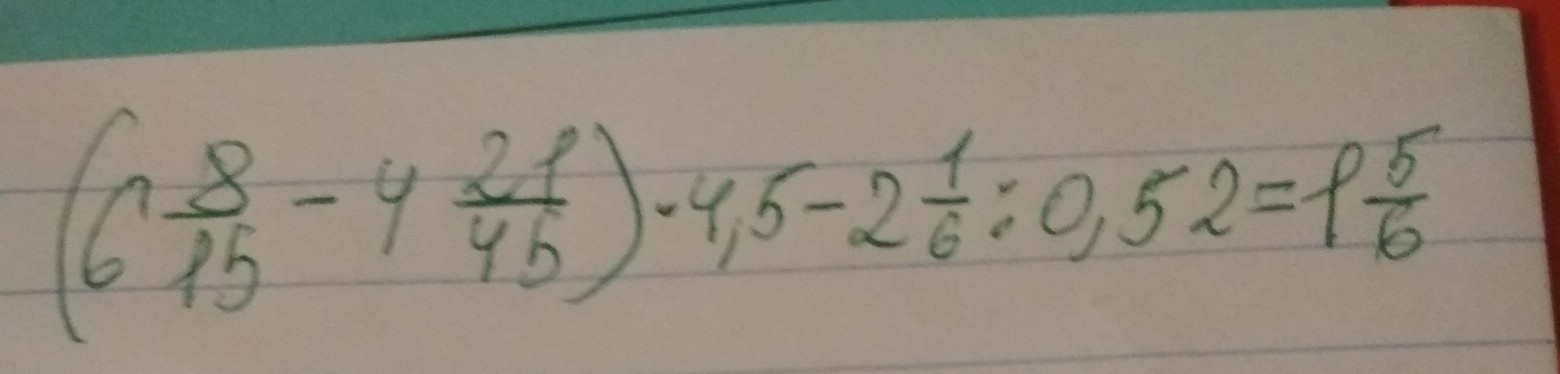 (6 8/15 - 4 21/45) · 4,5 - 2 1/6 : 0,52 = 1 5/6